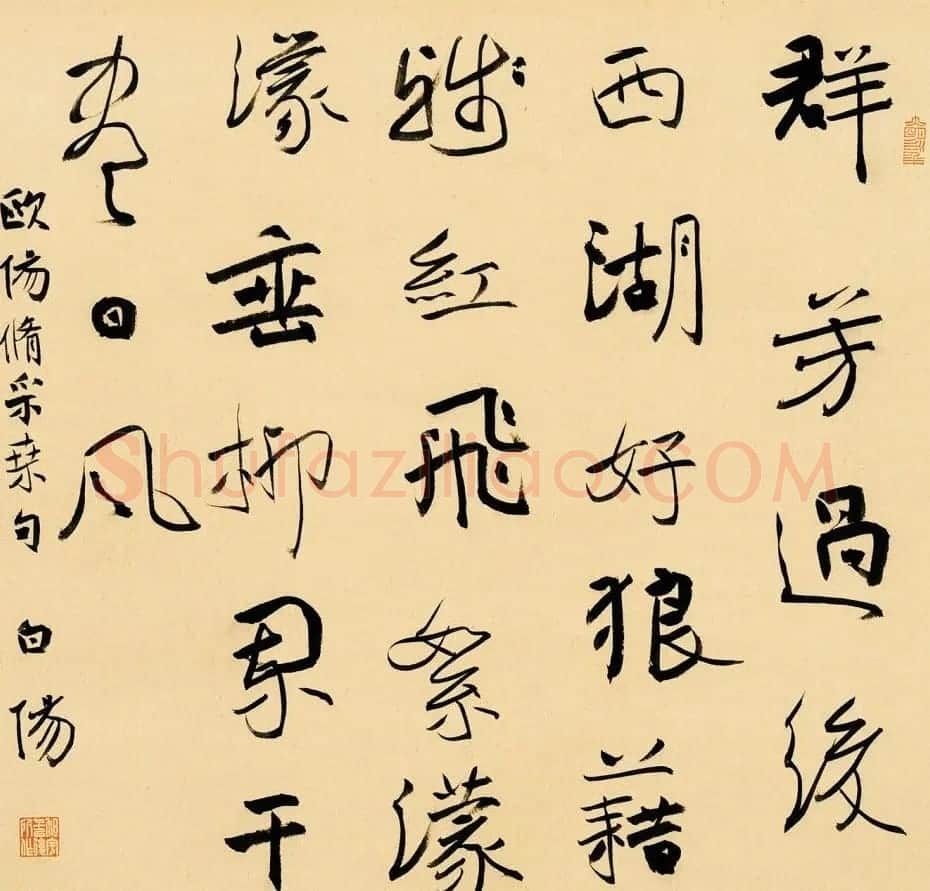 群芳過後
西湖好狼藉
残紅飛絮濛
濛垂柳闌干
盡日风
欧陽脩采桒句 白陽
Shufaziliao.COM